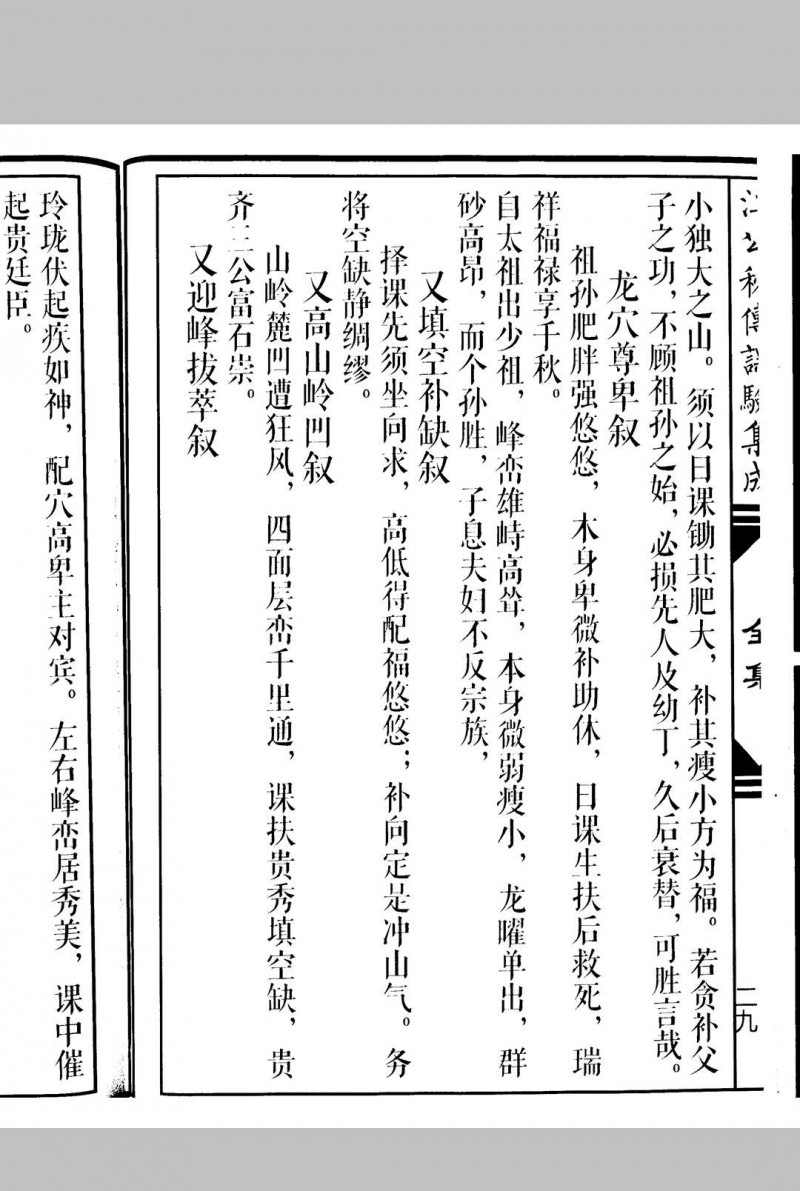 秘傳
驗集成
全集
二九
小独大之山。须以日课锄其肥大，补其瘦小方为福。若贪补父
子之功，不顾祖孙之始，必损先人及幼丁，久后衰替，可胜言哉。
龙穴尊卑叙
祖孙肥胖强悠悠，木身卑微补助休，日课生扶后救死，瑞
祥福禄享千秋。
自太祖出少祖，峰峦雄峙高耸，本身微弱瘦小，龙曜单出，群
砂高昂，而个孙胜，子息夫妇不反宗族，
又填空补缺叙
择课先须坐向求，高低得配福悠悠；补向定是冲山气。务
将空缺静绸缪。
又高山岭凹叙
山岭麓凹遭狂风，四面层峦千里通，课扶贵秀填空缺，贵
齐三公富石崇。
又迎峰拔萃叙
玲珑伏起疾如神，配穴高卑主对宾。左右峰峦居秀美，课中催
起贵廷臣。